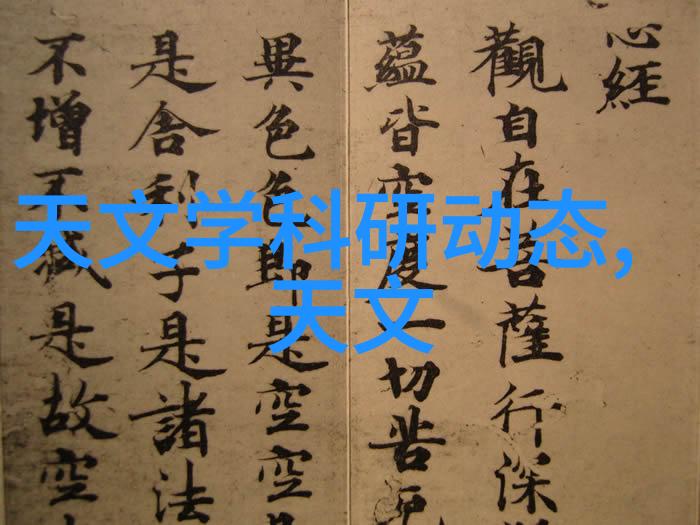 天文学科研动态,
天文
心經
觀自在菩薩行深
蘊皆空度一切苦厄
異色色即是空空
是舍利子是諸法
不增不減是故空